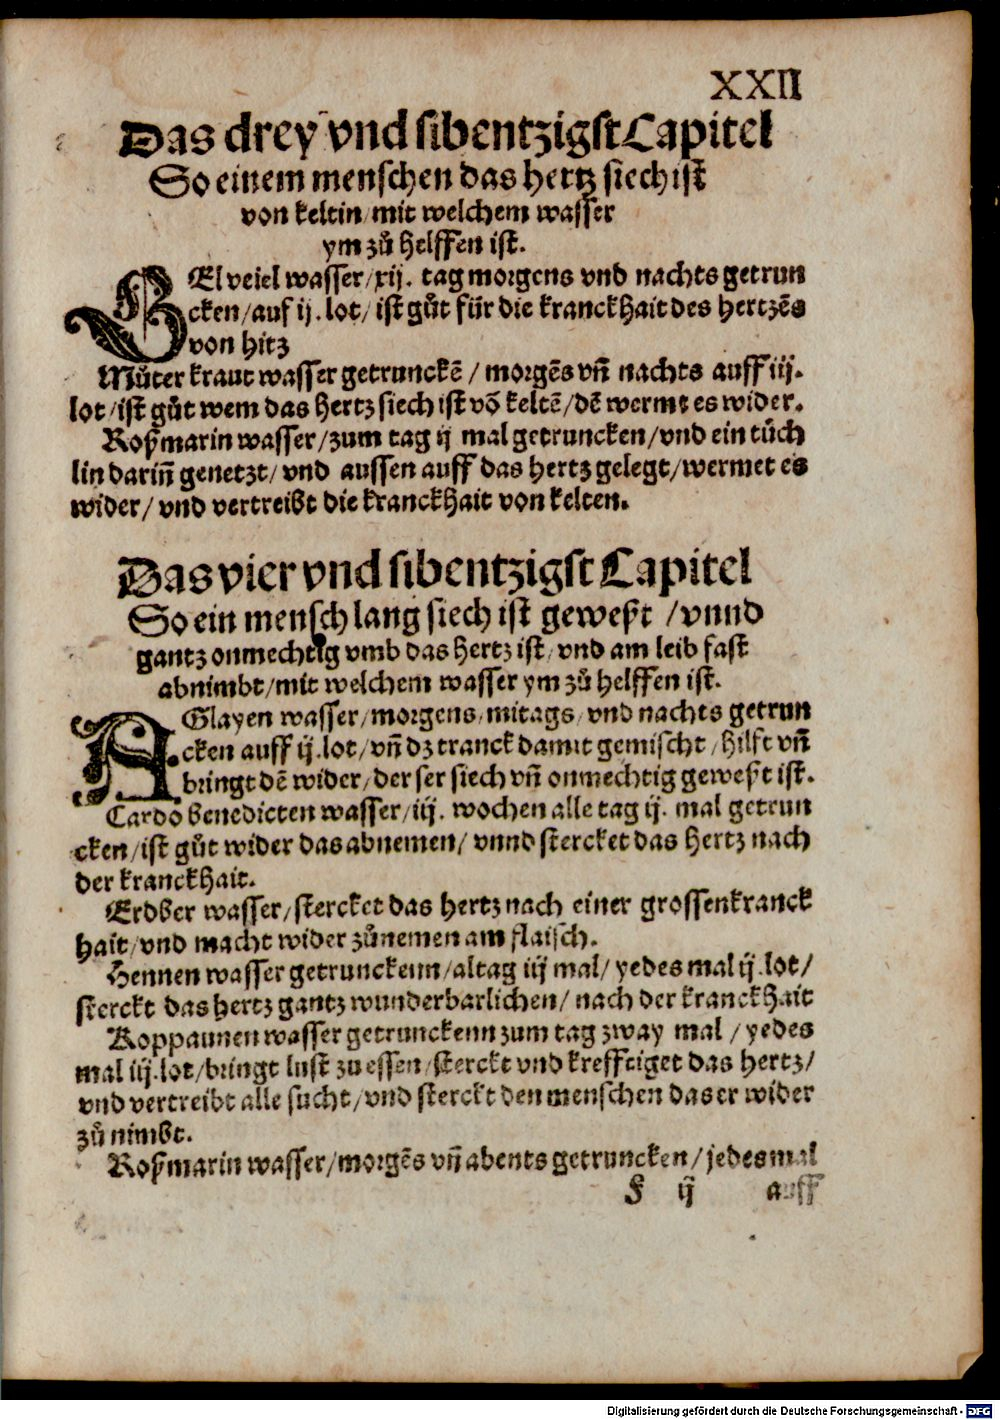 XXII
Das drey vnd sibentzigst Capitel
So einem menschen das hertz siech ist
von keltin/mit welchem wasser
ym zů helffen ist.
GEl veiel wasser/xij. tag morgens vnd nachts getrun
cken/auf ij.lot/ist gůt für die kranckhait des hertzēs
von hitz
Můter kraut wasser getrunckē/morgēs vn̄ nachts auff iij.
lot/ist gůt wem das hertz siech ist vō keltē/dē wermt es wider.
Roßmarin wasser/zum tag ij mal getruncken/vnd ein tůch
lin darin̄ genetzt/vnd aussen auff das hertz gelegt/wermet es
wider/vnd vertreibt die kranckhait von kelten.
Das vier vnd sibentzigst Capitel
So ein mensch lang siech ist geweßt/vnnd
gantz onmechtig vmb das hertz ist/vnd am leib fast
abnimbt/mit welchem wasser ym zů helffen ist.
AGlayen wasser/morgens/mitags/vnd nachts getrun
cken auff ij.lot/vn̄ dz tranck damit gemischt/hilft vn̄
bringt dē wider/der ser siech vn̄ onmechtig geweßt ist.
Cardo benedicten wasser/iij. wochen alle tag ij. mal getrun
cken/ist gůt wider das abnemen/vnnd stercket das hertz nach
der kranckhait.
Erdber wasser/stercket das hertz nach einer grossen kranck
hait/vnd macht wider zůnemen am flaisch.
Hennen wasser getrunckenn/altag iij mal/yedes mal ij.lot/
sterckt das hertz gantz wunderbarlichen/nach der kranckhait
Koppaunen wasser getrunckenn zum tag zway mal/yedes
mal iij.lot/bringt lust zu essen/sterckt vnd krefftiget das hertz/
vnd vertreibt alle sucht/vnd sterckt den menschen das er wider
zů nimbt.
Roßmarin wasser/morgēs vn̄ abents getruncken/jedes mal
F ij auff
Digitalisierung gefördert durch die Deutsche Forschungsgemeinschaft - DFG